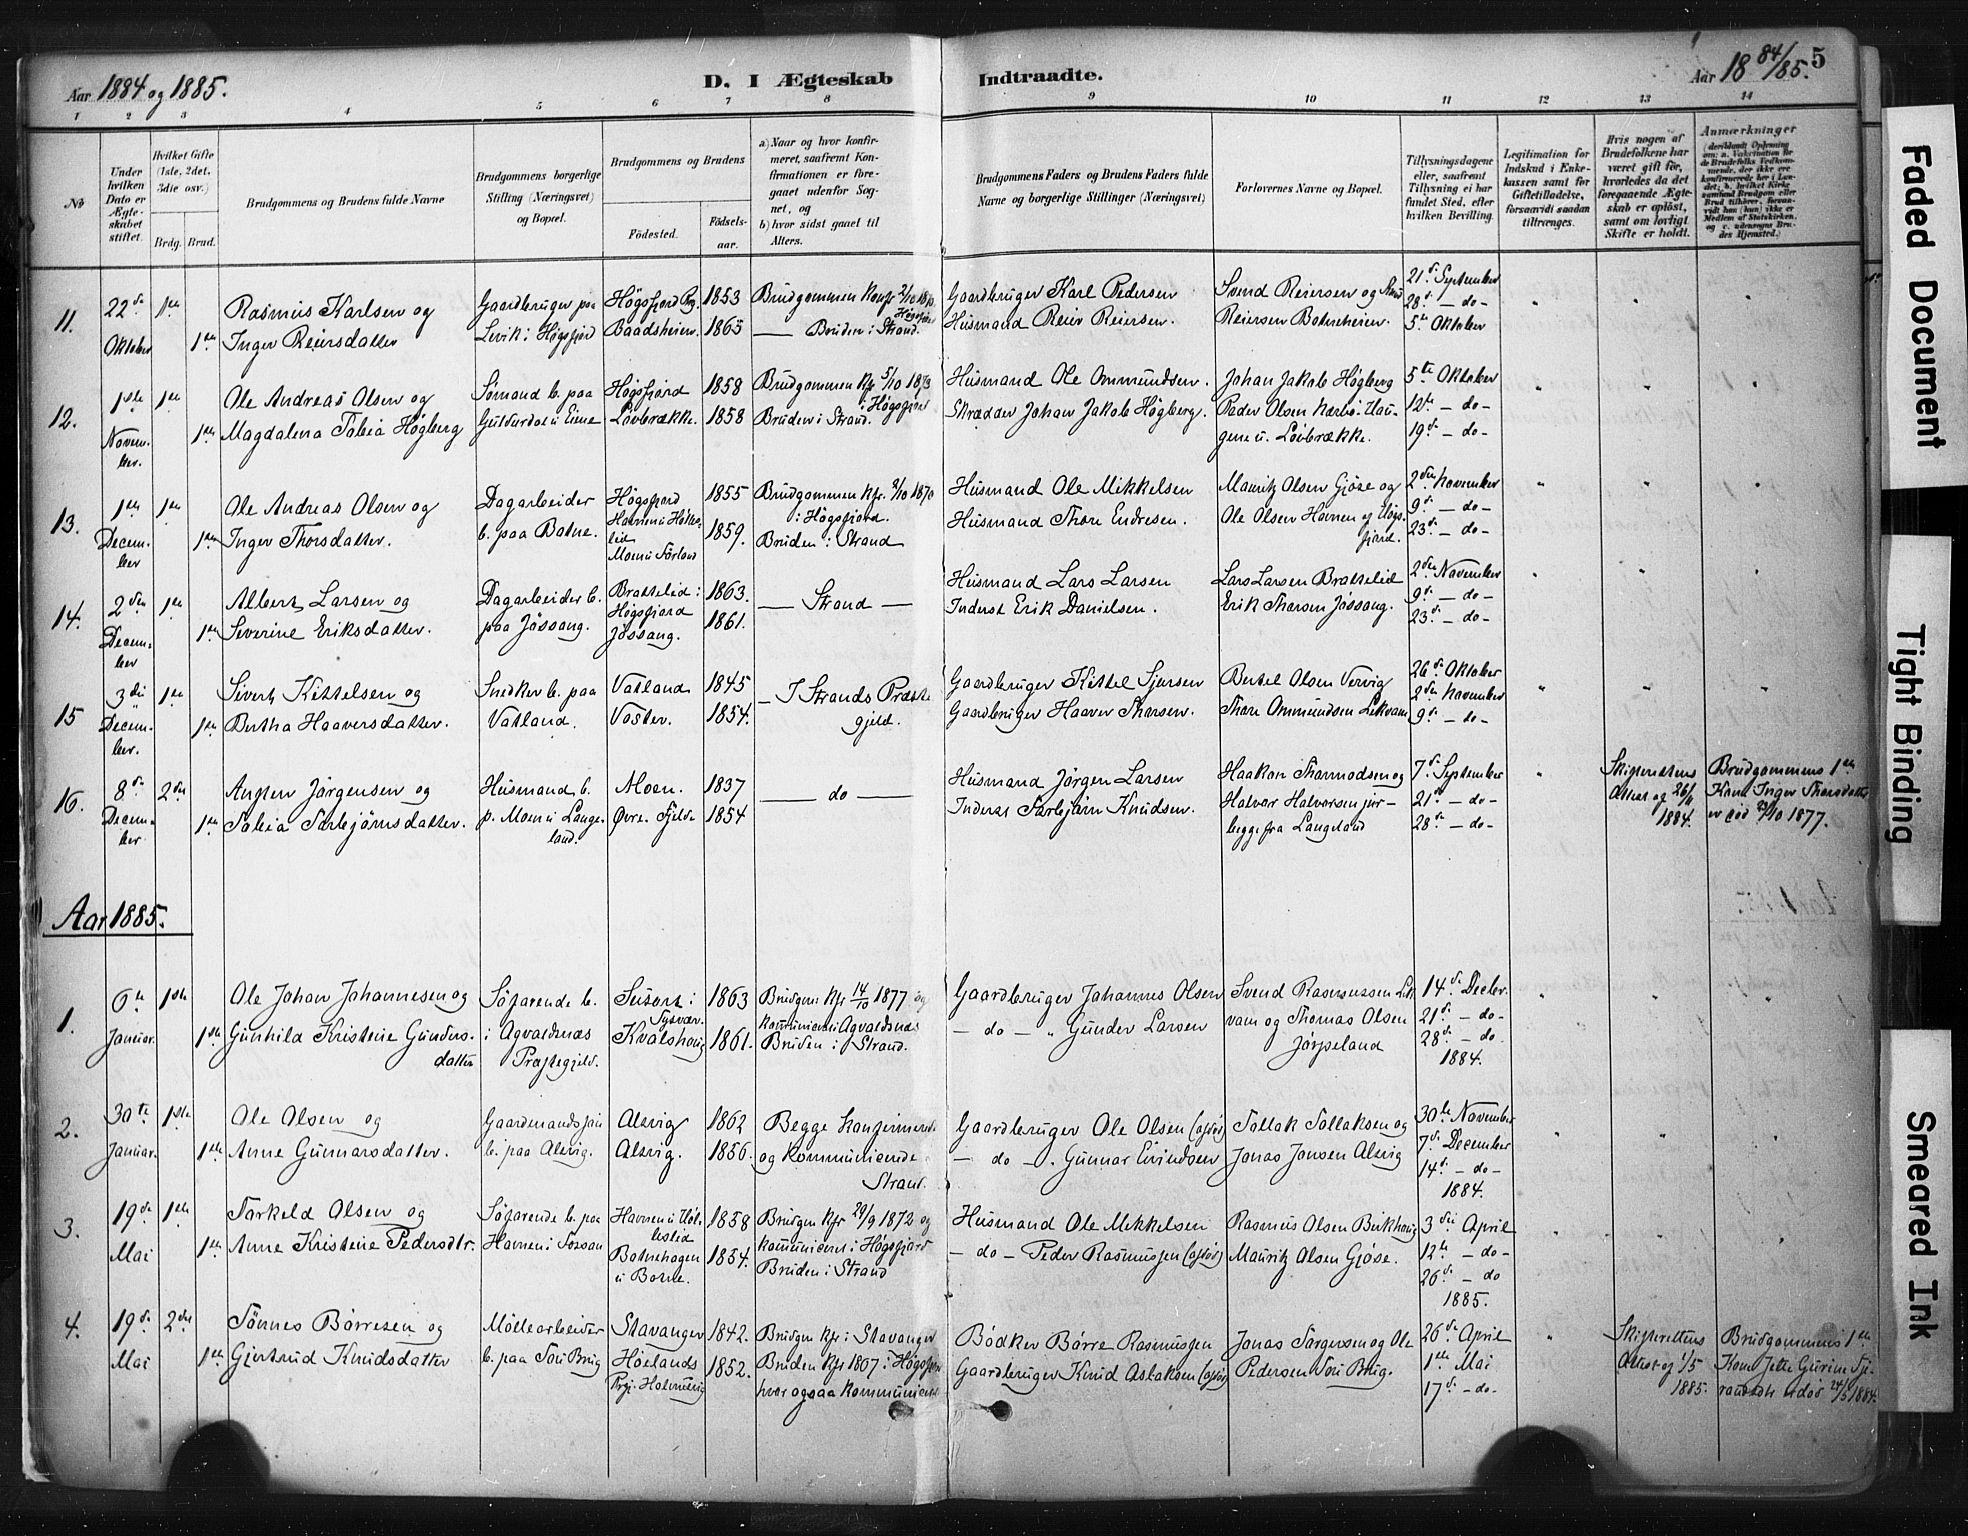 Aar 1884 og 1885.
D. I Ægteskab
Indtraadte.
Aar 18 84/85. 5
1 2 3 4 5 6 7 8 9 10 11 12 13 14
No
Under hvilken Dato er Ægteskabet stiftet.
Hvilket Gifte (1ste, 2det, 3die osv.)
Brdg. Brud.
Brudgommens og Brudens fulde Navne
Brudgommens borgerlige Stilling (Næringsvei) og Bopæl.
Brudgommens og Brudens
Fødested.
Fødselsaar.
a) Naar og hvor konfirmeret, saafremt Konfirmationen er foregaaet udenfor Sognet, og
b) hvor sidst gaaet til Alters.
Brudgommens Faders og Brudens Faders fulde Navne og borgerlige Stillinger (Næringsvei)
Forlovernes Navne og Bopæl.
Tillysningsdagene eller, saafremt Tillysning ei har fundet Sted, efter hvilken Bevilling.
Legitimation for Indskud i Enkekassen samt for Giftetilladelse, forsaavidt saadan tiltrænges.
Hvis nogen af Brudefolkene har været gift før, hvorledes da det foregaaende Ægteskab er opløst, samt om lovligt Skifte er holdt.
Anmærkninger
11. 22de Oktober 1ste 1ste
Rasmus Karlsen og
Inger Reiersdatter
Gaardbruger paa
Levik i Høgsfjord
Høgsfjord Prg. 1853
Baadsheien 1865
Brudgommen Konfr 2/10 18
Høgsfjord
— Bruden i Strand.
Gaardbruger Karl Pedersen
Husmand Reier Reiersen.
Svend Reiersen og
Reiersen Botneheien.
21de September
28de – do –
5te Oktober
12. 1ste November 1ste 1ste
Ole Andreas Olsen og
Magdalena Tobia Høgberg
Sømand b. paa
Høgsfjord 1858
Løvbrække. 1858
Brudgommen Kfr 5/10 1873
i Høgsfjord
Bruden i Strand.
Husmand Ole Ommundsen.
Skrædder Johan Jakob Høgberg.
Johan Jakob Høgberg
Peder Olsen
gene u. Løvbrække.
5te Oktober
12te – do –
19de – do –
13. 1ste December 1ste 1ste
Ole Andreas Olsen og
Inger Thorsdatter.
Dagarbeider
b. paa Botne.
Høgsfjord 1855
Havnen i
1859.
Brudgommen Kfr. 2/10 1870
i Høgsfjord.
Bruden i Strand
Husmand Ole Mikkelsen
Husmand Thore Endresen.
Mauritz Olsen Gjøse og
Ole Olsen Havnen af Høgsfjord.
2den November
9de – do –
23de – do –
14. 2den December 1ste 1ste
Albert Larsen og
Severine Eriksdatter.
Dagarbeider b.
paa Jøssang.
Brattelid i 1863.
Høgsfjord
Jøssang. 1861.
— Strand —
Husmand Lars Larsen
Inderst Erik Danielsen.
Lars Larsen Brattelid
Erik Thorsen Jøssang.
2den November
9de – do –
23de – do –
15 3die December 1ste 1ste
Sivert Kittelsen og
Bertha Haaversdatter.
Snedker b. paa
Vatland.
Vatland 1845
Voster. 1854.
— I Strands Præste
gjeld.
Gaardbruger Kittel Sjursen
Gaardbruger Haaver Thorsen.
Bertel Olsen Vervig
Thore Ommundsen Lekvam
26de Oktober
2den November
9de – do –
16. 8de December 2det 1ste
Jørgensen og
Tobia Torbjørnsdatter.
Husmand b.
p. Moen u Lange
land.
Moen. 1837
Øvre Fjelde 1854
— do —
Husmand Jørgen Larsen
Inderst Torbjørn Knudsen.
Haakon Thormodsen og
Halvor Halvorsen
begge fra Langeland
7de September
21de – do –
28de – do –
Skifterettens
Attest og 26/11
1884.
Brudgommens 1ste
Kone Inger Thorsdatter
er død 1877.
Aar 1885.
1. 6te Januar. 1ste 1ste
Ole Johan Johannesen og
Gunhild Kristine Gunders
datter
Søfarende b.
i Agvaldnæs
Præstegjeld.
Susort i 1863
Tysvær.
Kvalshoug 1861.
Brudgm: Kfr 14/10 1877 og
kommunicent i Agvaldnæs
Bruden i Strand.
Gaardbruger Johannes Olsen
– do – „ Gunder Larsen
Svend Rasmussen Lek
vam og Thomas Olsen
Jørpeland
14de Decbr.
21de – do –
28de – do
1884.
2. 30te Januar. 1ste 1ste
Ole Olsen og
Anne Gunnarsdatter.
Gaardmandssøn
b. paa Alsvig.
Alsvig 1862
Alsvig. 1856.
Begge konfirmerede
og kommunicende
Strand.
Gaardbruger Ole Olsen (afdød)
– do – . Gunnar Eivindsen
Tollak Tollaksen og
Jonas Jonsen Alsvig
30te November
7de December
14de – do –
1884.
3. 19de Mai 1ste 1ste
Torkeld Olsen og
Anne Kristine Pedersdtr.
Søfarende b. paa
Havnen i Forsan
Havnen u 1858
Botnehagen 1854.
u Botne.
Brudgm Kfr 29/9 1872 og
kommunicent i Høgsfjord
Bruden i Strand
Husmand Ole Mikkelsen
– do – Peder Rasmussen (afdød)
Rasmus Olsen Birkhoug
Mauritz Olsen Gjøse.
3die April
12te – do –
26de – do
1885.
4. 19de Mai 2det 1ste
Tönnes Børresen og
Gjertrud Knudsdatter
Møllearbeider
b. paa Tou Brug
Stavanger 1842.
Hølands 1852.
Prgj.
Brudgm Kfr i Stavanger
Bruden Kfr 1867 i Høgsfjord
hvor ogsaa kommunicent
Bødker Børre Rasmussen
Gaardbruger Knud Aslaksen (afdød)
Jonas Torgersen og Ole
Pedersen Tou Brug.
26de April
1ste Mai
17de – do –
Skifterettens
Attest af 1/5
1885.
Brudgommens 1ste
Kone Jette Gurine
død 24/5 1884.
Faded Document
Tight Binding
Smeared Ink